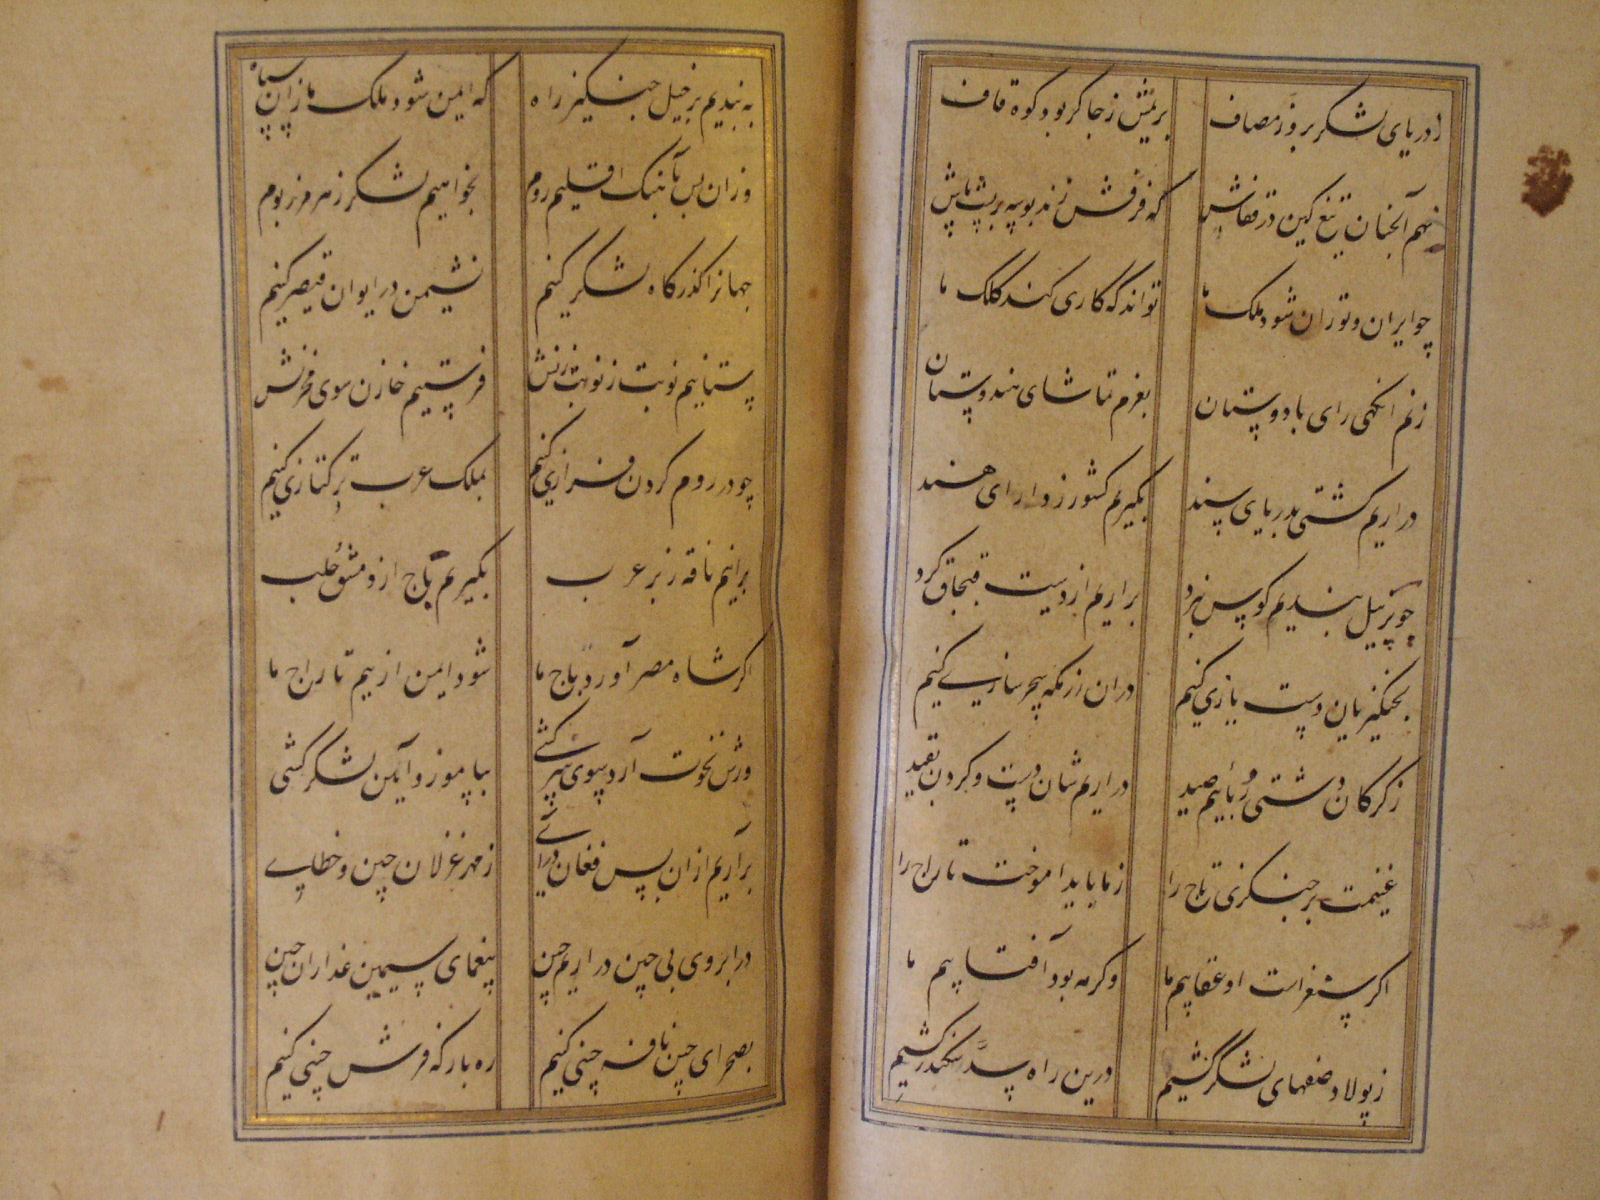 ز دریای لشکر بروز مصاف بریمش ز جا کر بود کوه قاف
نهم آنچنان تیغ کین در قفاش که فرقش زند بوسه بر پشت پاش
چو ایران و توران شود ملک ما تواند که کاری کند کلک ما
زنم انکهی رای با دوستان بعزم تماشای هندوستان
دراریم کشتی بدریای سند بکیریم کشور ز دارای هند
چو بر پیل بندیم کوس نبرد براریم از دست قبچاق کرد
بچنکیزیان دست یازی کنیم دران رزمکه سحر سازی کنیم
ز کرکان دشتی رباییم صید دراریم شان دست و کردن بقید
غنیمت بر چنکزی تاج را ز ما باید آموخت تاراج را
اکر سنقر است او عقابیم ما وکر مه بود آفتابیم ما
ز پولاد صفهای لشکر کشیم درین راه سد سکندر کشیم
به بندیم بر خیل چنکیز راه که ایمن شود ملک ما زان سپاه
وزان پس بآهنک اقلیم روم بخواهیم لشکر ز هر مرز بوم
جهانرا کذرکاه لشکر کنیم نشیمن در ایوان قیصر کنیم
ستانیم نوبت ز نوبت زنش فرستیم خازن سوی مخزنش
چو در روم کردن فرازی کنیم بملک عرب ترکتازی کنیم
برانیم ناقه ز بر عرب بکیریم باج از دمشق و حلب
اکر شاه مصر آورد باج ما شود ایمن از بیم تاراج ما
ورش نخوت آرد بسوی سرکشی بیاموزد آیین لشکر کشی
براریم ازان پس فغان درائی ز مهر غزلان چین و خطای
در ابروی بی چین دراریم چین بیغمای سیمین عذاران چین
بصحرای چین نافه چینی کنیم ره بارکه فرش چینی کنیم